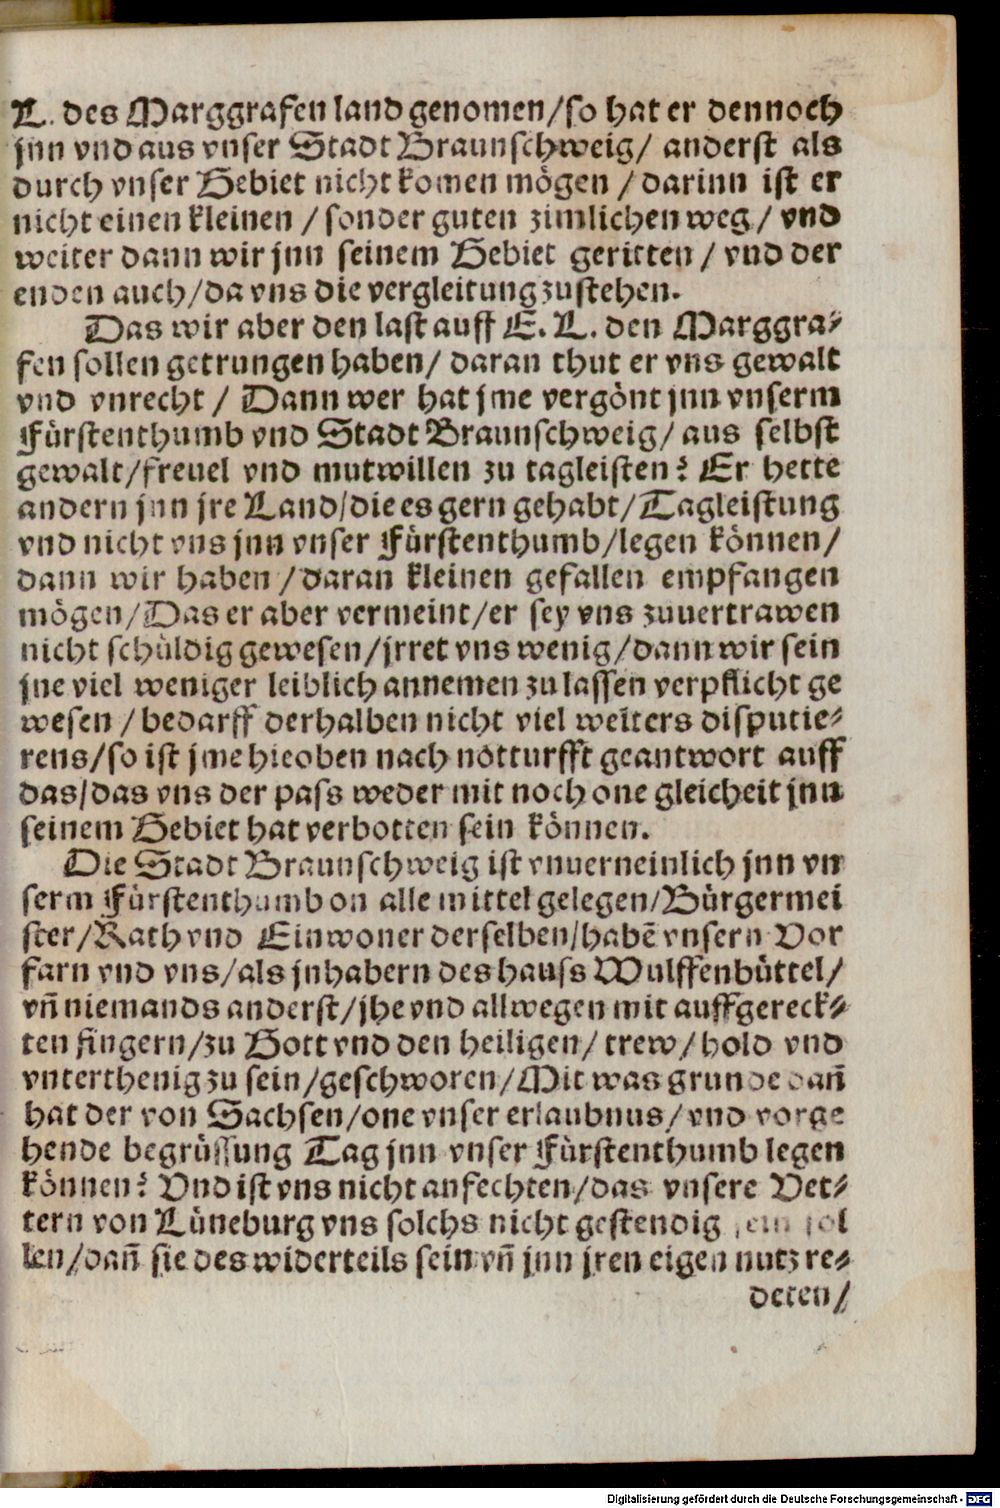 L. des Marggrafen land genomen/so hat er dennoch
jnn vnd aus vnser Stadt Braunschweig/ anderst als
durch vnser Gebiet nicht komen mögen / darinn ist er
nicht einen kleinen / sonder guten zimlichen weg / vnd
weiter dann wir jnn seinem Gebiet geritten / vnd der
enden auch/da vns die vergleitung zustehen.
Das wir aber den last auff E. L. den Marggra-
fen sollen getrungen haben/ daran thut er vns gewalt
vnd vnrecht / Dann wer hat jme vergönt jnn vnserm
Fürstenthumb vnd Stadt Braunschweig/ aus selbst
gewalt/freuel vnd mutwillen zu tagleisten? Er hette
andern jnn jre Land/die es gern gehabt/Tagleistung
vnd nicht vns jnn vnser Fürstenthumb/legen können/
dann wir haben /daran kleinen gefallen empfangen
mögen/Das er aber vermeint/er sey vns zuuertrawen
nicht schüldig gewesen/jrret vns wenig/dann wir sein
jne viel weniger leiblich annemen zu lassen verpflicht ge
wesen / bedarff derhalben nicht viel weiters disputie-
rens/so ist jme hieoben nach notturfft geantwort auff
das/das vns der pass weder mit noch one gleicheit jnn
seinem Gebiet hat verbotten sein können.
Die Stadt Braunschweig ist vnuerneinlich jnn vn
serm Fürstenthumb on alle mittel gelegen/Bürgermei
ster/Rath vnd Einwoner derselben/habē vnsern Vor
farn vnd vns/als jnhabern des hauss Wulffenbüttel/
vñ niemands anderst/jhe vnd allwegen mit auffgereck-
ten fingern/zu Gott vnd den heiligen/ trew/hold vnd
vnterthenig zu sein/geschworen/Mit was grunde dañ
hat der von Sachsen/one vnser erlaubnus/vnd vorge
hende begrüssung Tag jnn vnser Fürstenthumb legen
können? Vnd ist vns nicht anfechten/das vnsere Vet-
tern von Lüneburg vns solchs nicht gestendig sein sol
len/dañ sie des widerteils sein vñ jnn jren eigen nutz re-
deten/
Digitalisierung gefördert durch die Deutsche Forschungsgemeinschaft - DFG